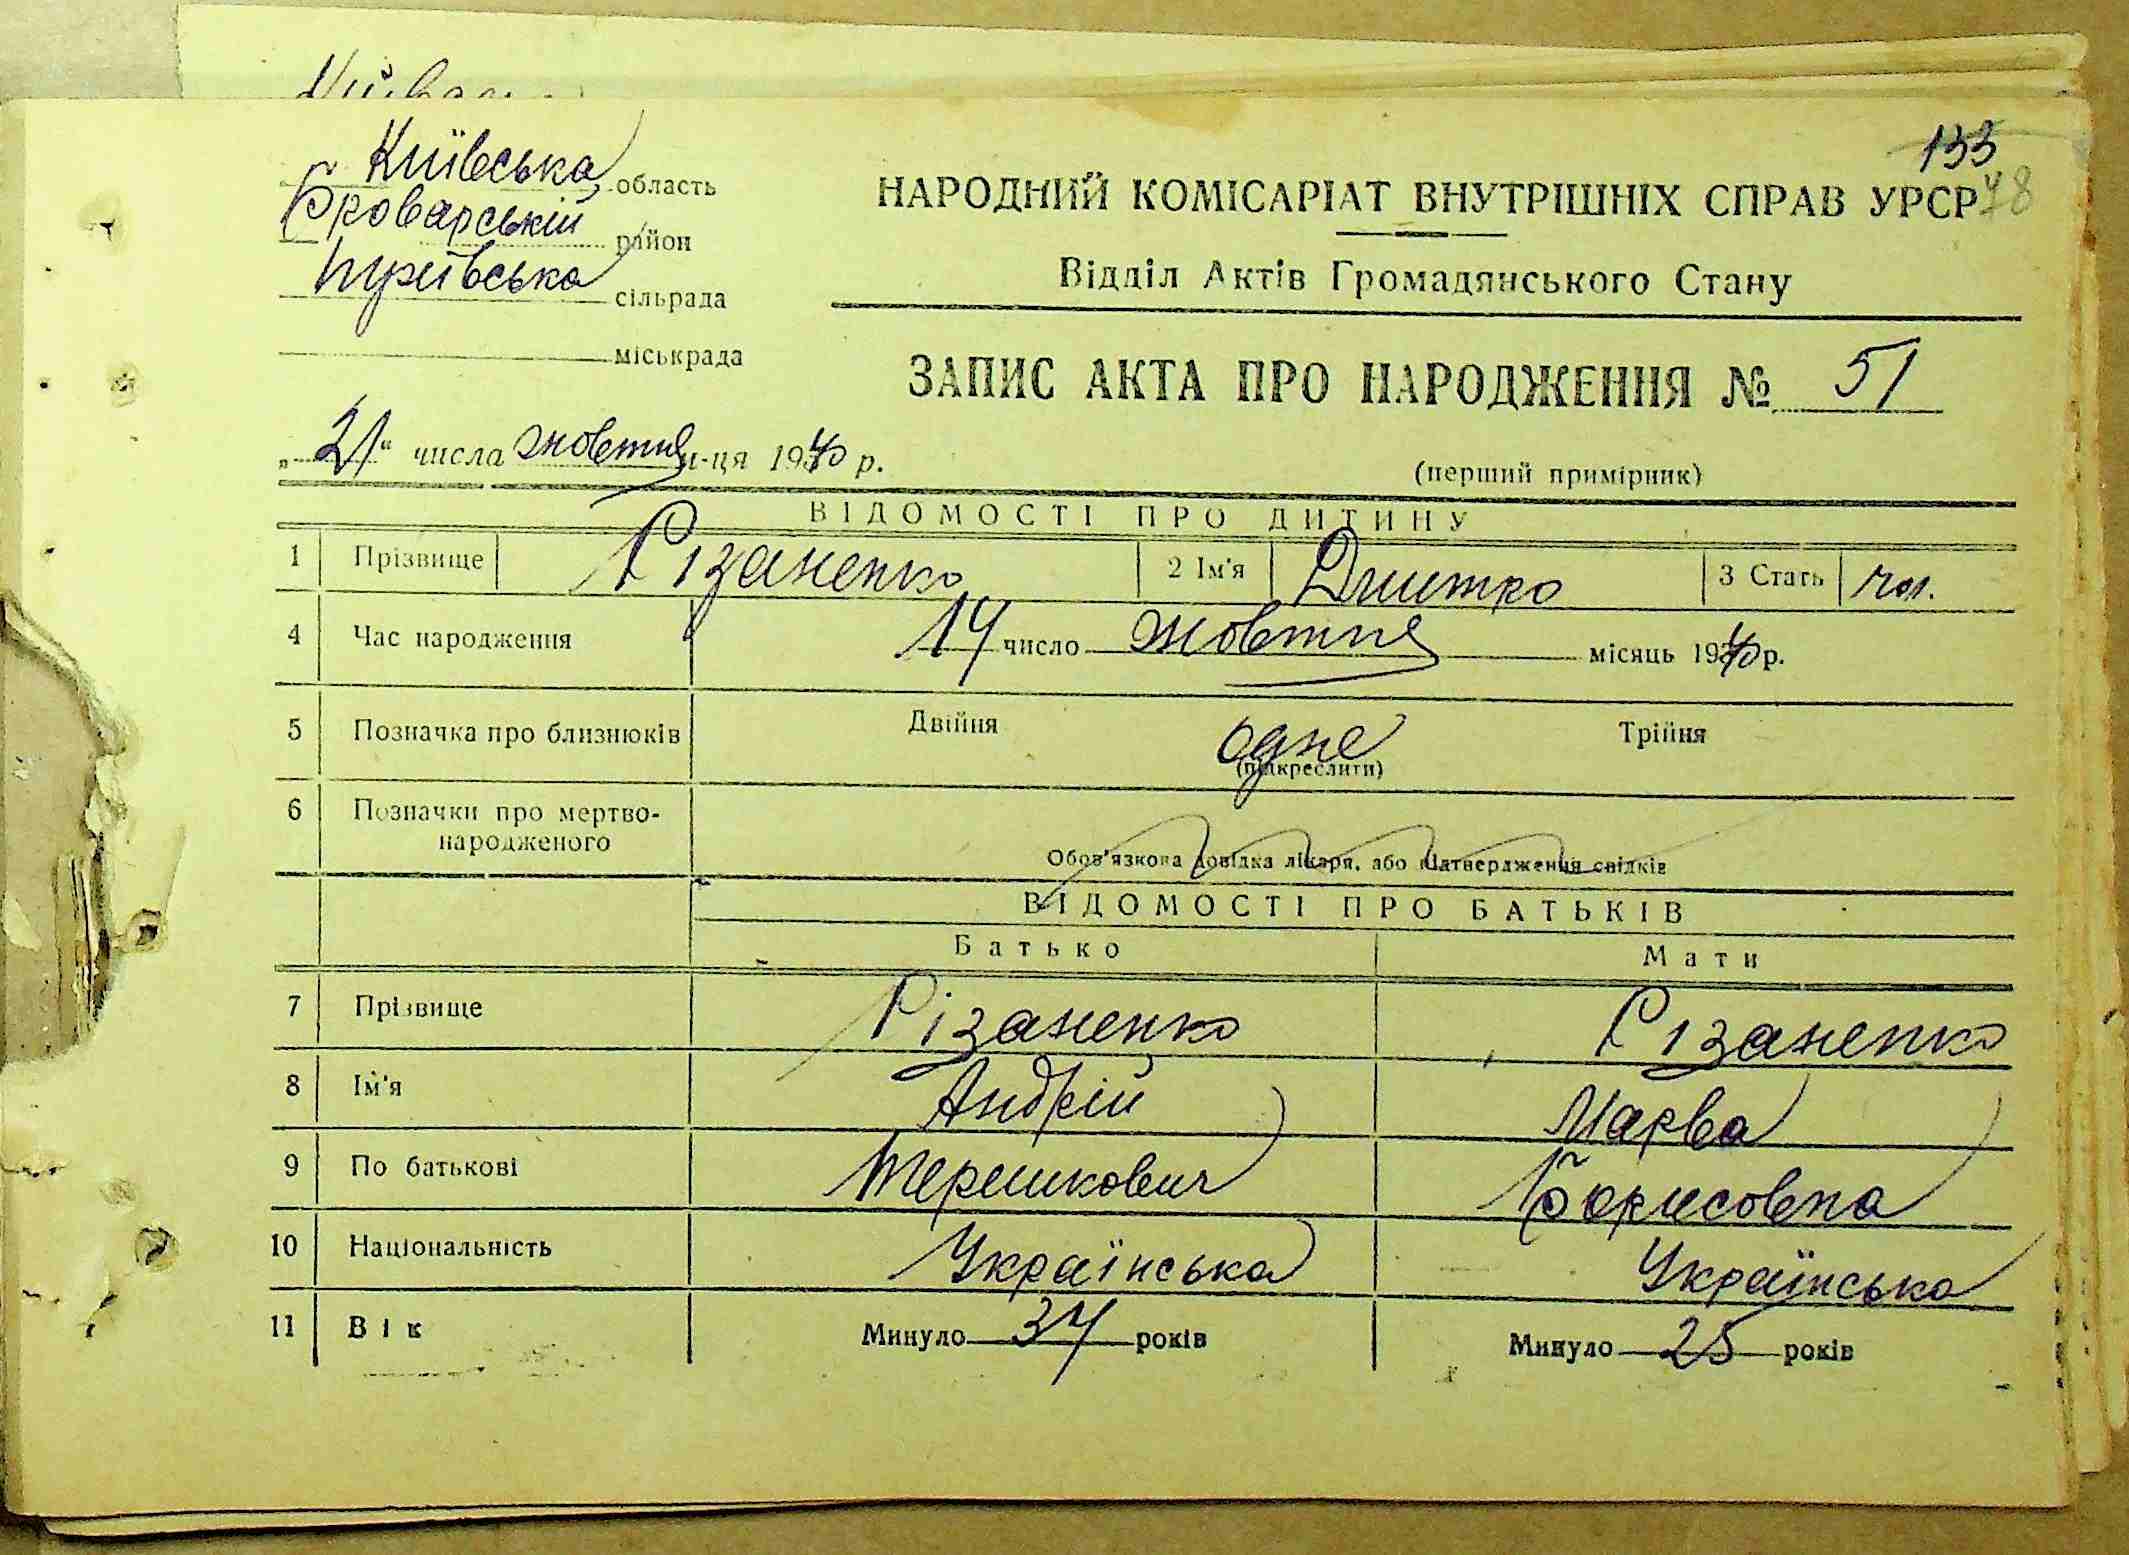 Київська область
Броварській район
Пухівська сільрада
міськрада
133
78
НАРОДНИЙ КОМІСАРІАТ ВНУТРІШНІХ СПРАВ УРСР
Відділ Актів Громадянського Стану
ЗАПИС АКТА ПРО НАРОДЖЕННЯ № 51
„21" числа жовтня м-ця 1940 р.
(перший примірник)
ВІДОМОСТІ ПРО ДИТИНУ
1 Прізвище Різаненко 2 Ім'я Дмитро 3 Стать чол.
4 Час народження 14 число жовтня місяць 1940 р.
5 Позначка про близнюків Двійня одне Трійня
(підкреслити)
6 Позначки про мертвонародженого
Обов'язкова довідка лікаря, або підтвердження свідків
ВІДОМОСТІ ПРО БАТЬКІВ
Батько Мати
7 Прізвище Різаненко Різаненко
8 Ім'я Андрій Марва
9 По батькові Терешкович Борисовна
10 Національність Українська Українська
11 Вік Минуло 34 років Минуло 25 років